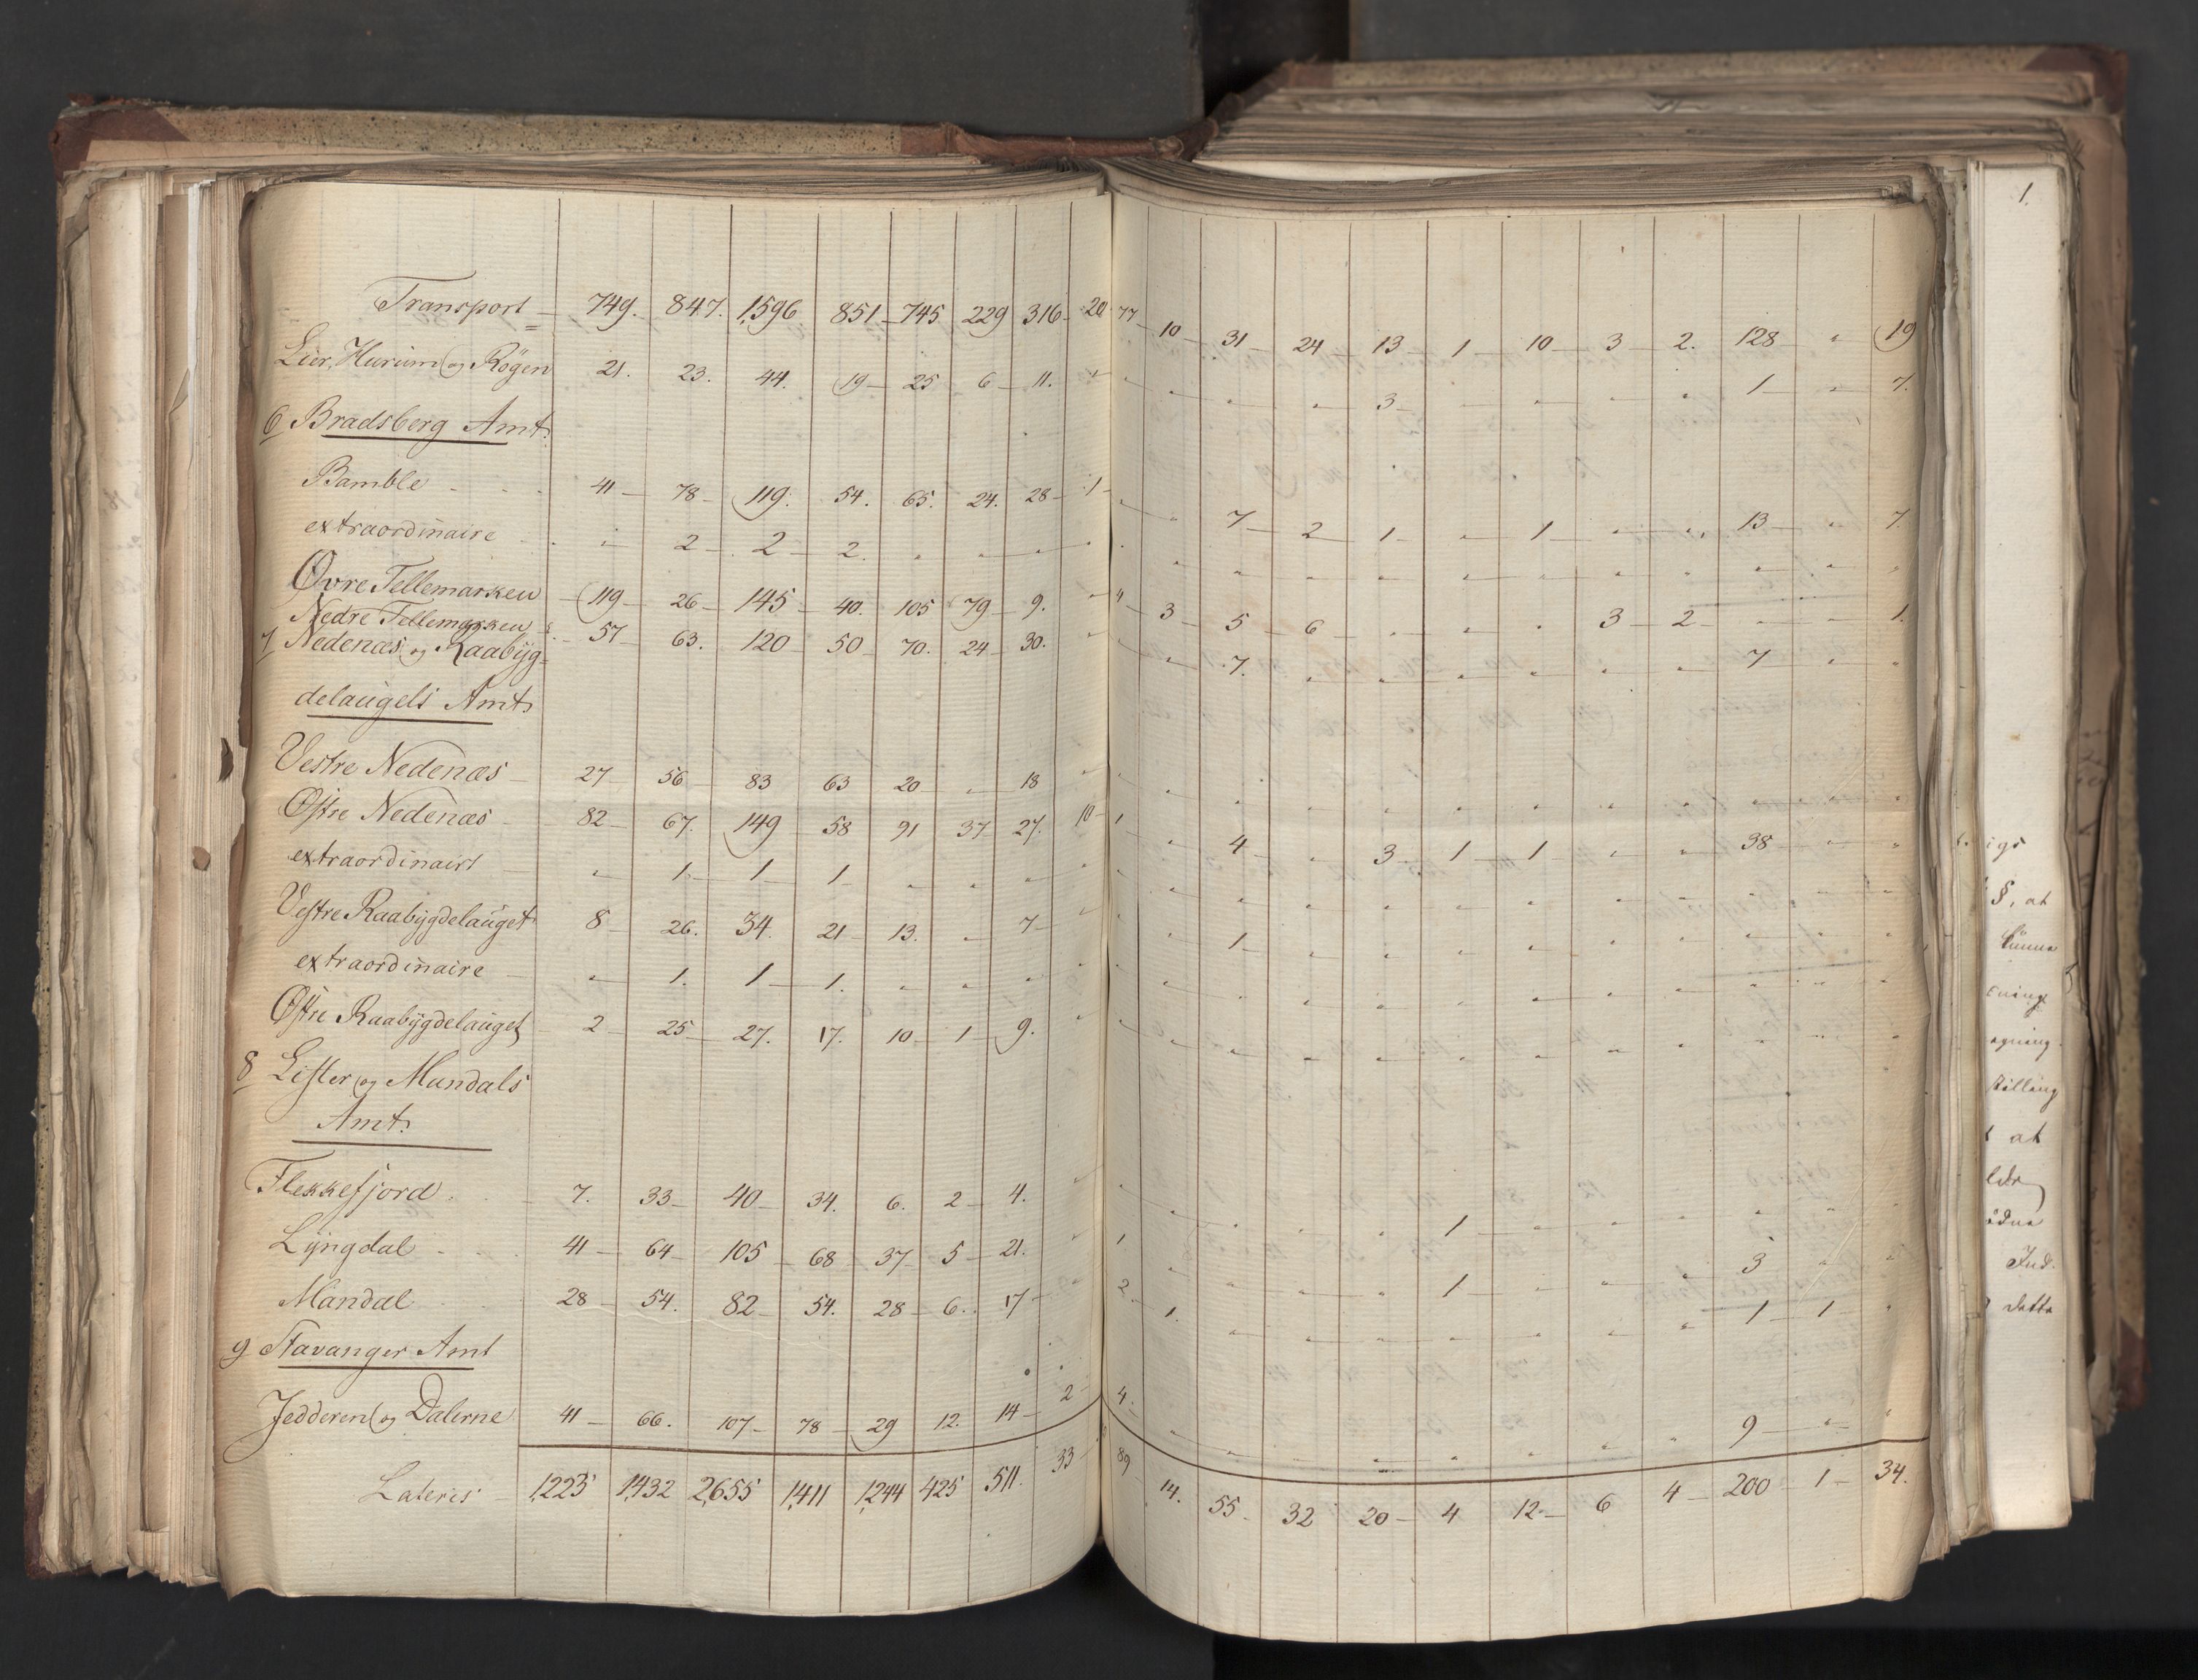 Transport — 749. 847. 1,596 851 745 229 316 20 77 10 31 24 13 1 10 3 2. 128 " 19
Lier, Hurum og Rögen 21. 23. 44. 19 25 6 11. " " " " " 3 " " " " 1 " 7.
6 Bradsberg Amt
Bamble 41 78 119. 54. 65. 24. 28 1 " " 7 2 1 " 1 " " 13 " 7
extraordinaire " 2 2 2 " " " " " " " " " " " " " " " "
Øvre Tellemarken 119 26 145 40. 105 79 9. " 4 3 5 6 " " " 3 2 " " 1.
Nedre Tellemarken 57 63. 120 50 70. 24 30. " " " 7. " " " " " " 7 " "
7 Nedenæs og Raabÿg-
delaugets Amt
Vestre Nedenæs 27 56 83 63 20 " 18 " " " " " " " " " " " " "
Østre Nedenæs 82 67. 149 58 91 37 27. 10 1 " 4 " 3 1 1 " " 38 " "
extraordinairt " 1. 1 1 " " " " " " " " " " " " " " " "
Vestre Raabÿgdelauget 8 26. 34. 21 13. " 7 " " " 1 " " " " " " " " "
extraordinaire " 1. 1 1. " " " " " " " " " " " " " " " "
Østre Raabÿgdelauget 2 25 27. 17. 10 1 9. " " " " " " " " " " " " "
8 Lister og Mandals
Amt.
Flekkefjord 7. 33 40 34. 6. 2 4. " " " " " " 1 " " " " " "
Lÿngdal 41 64 105 68 37 5 21. " 1 " " " " 1 " " " 3 " "
Mandal 28 54. 82 54. 28 6. 17 " 2 1. " " " " " " " 1 1 "
9 Stavanger Amt
Jedderen og Dalerne 41 66. 107 78 29 12. 14 2 4. " " " " " " " " 9 " "
Lateris 1,223 1,432 2,655 1,411 1,244 425 511. 33 89 14. 55. 32 20 4 12 6 4 200 1 34.
1.
§, at
at
Ind.
dette